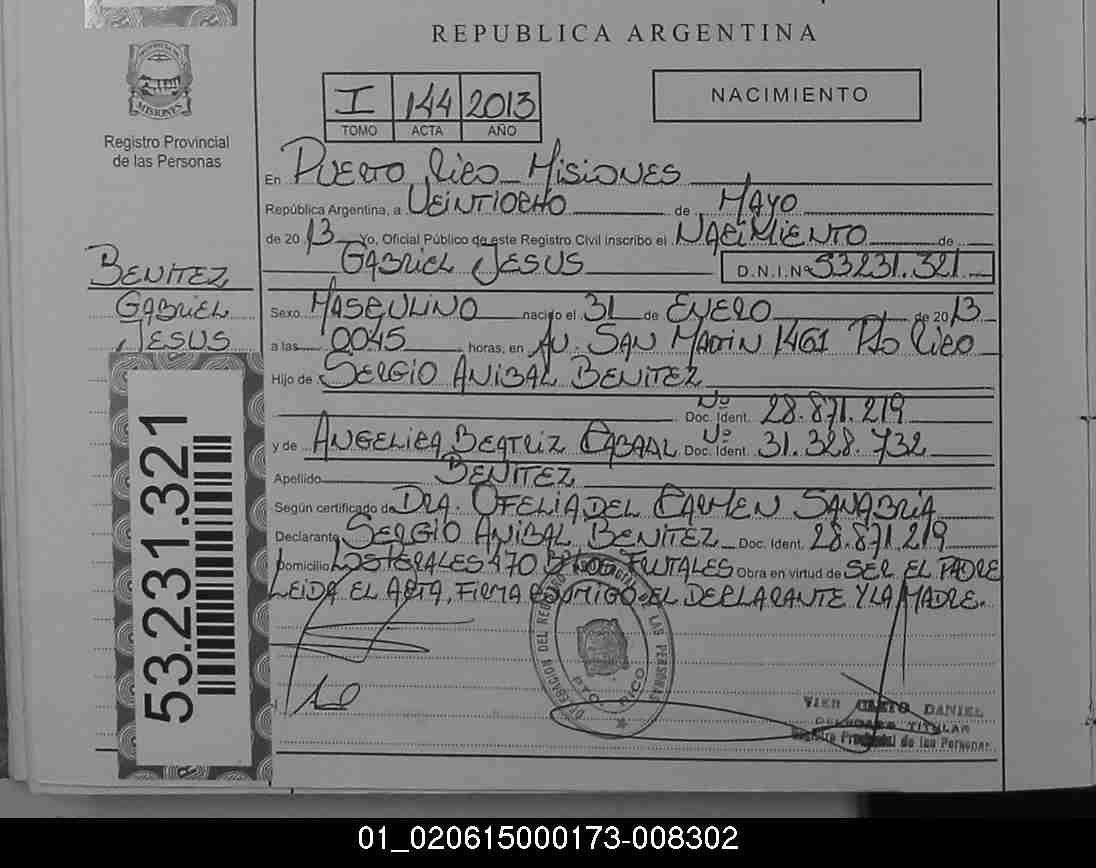 REPUBLICA ARGENTINA
PROVINCIA DE
MISIONES
Registro Provincial
de las Personas
I 144 2013
TOMO ACTA AÑO
NACIMIENTO
En PUERTO RICO MISIONES
República Argentina, a VEINTIOCHO de MAYO
de 2013 Yo, Oficial Público de este Registro Civil inscribo el NACIMIENTO de
GABRIEL JESUS D.N.I.Nº 53231.321
BENITEZ
GABRIEL
JESUS
Sexo MASCULINO nacido el 31 de ENERO de 2013
a las 0045 horas, en AV. SAN MARTIN 1461 PTO RICO
Hijo de SERGIO ANIBAL BENITEZ
Nº
Doc. Ident. 28.871.219
y de ANGELICA BEATRIZ CABRAL Nº Doc. Ident. 31.328.732
Apellido BENITEZ
Según certificado de DRA. OFELIA DEL CARMEN SANABRIA
Declarante SERGIO ANIBAL BENITEZ Doc. Ident. 28.871.219
Domicilio LOS PERALES 470 Bº LOS FRUTALES Obra en virtud de SER EL PADRE
LEIDA EL ACTA, FIRMA CONMIGO EL DECLARANTE Y LA MADRE.
53.231.321
DELEGACION DEL REGISTRO PROVINCIAL DE LAS PERSONAS
PTO. RICO
DANIEL
TITULAR
Registro Provincial de las Personas
01_020615000173-008302